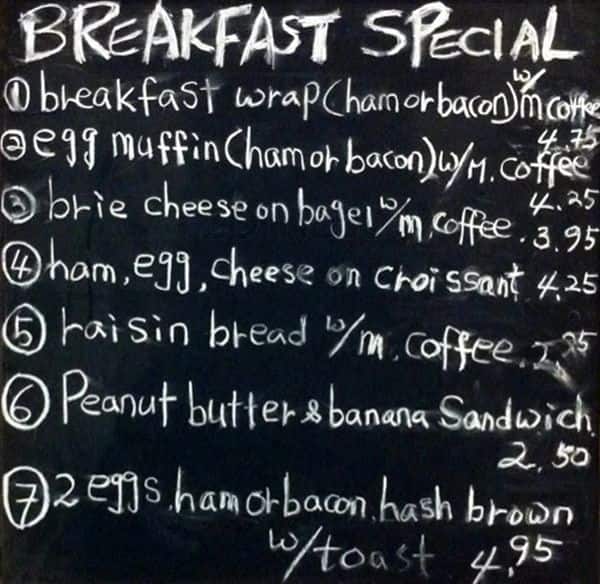 BREAKFAST SPECIAL
① breakfast wrap (ham or bacon) w/ m coffee
4.75
② egg muffin (ham or bacon) w/ M. coffee
4.25
③ brie cheese on bagel w/ m. coffee. 3.95
④ ham, egg, cheese on croissant 4.25
⑤ raisin bread w/ m. coffee.
⑥ Peanut butter & banana Sandwich.
2.50
⑦ 2 eggs, ham or bacon, hash brown
w/ toast 4.95